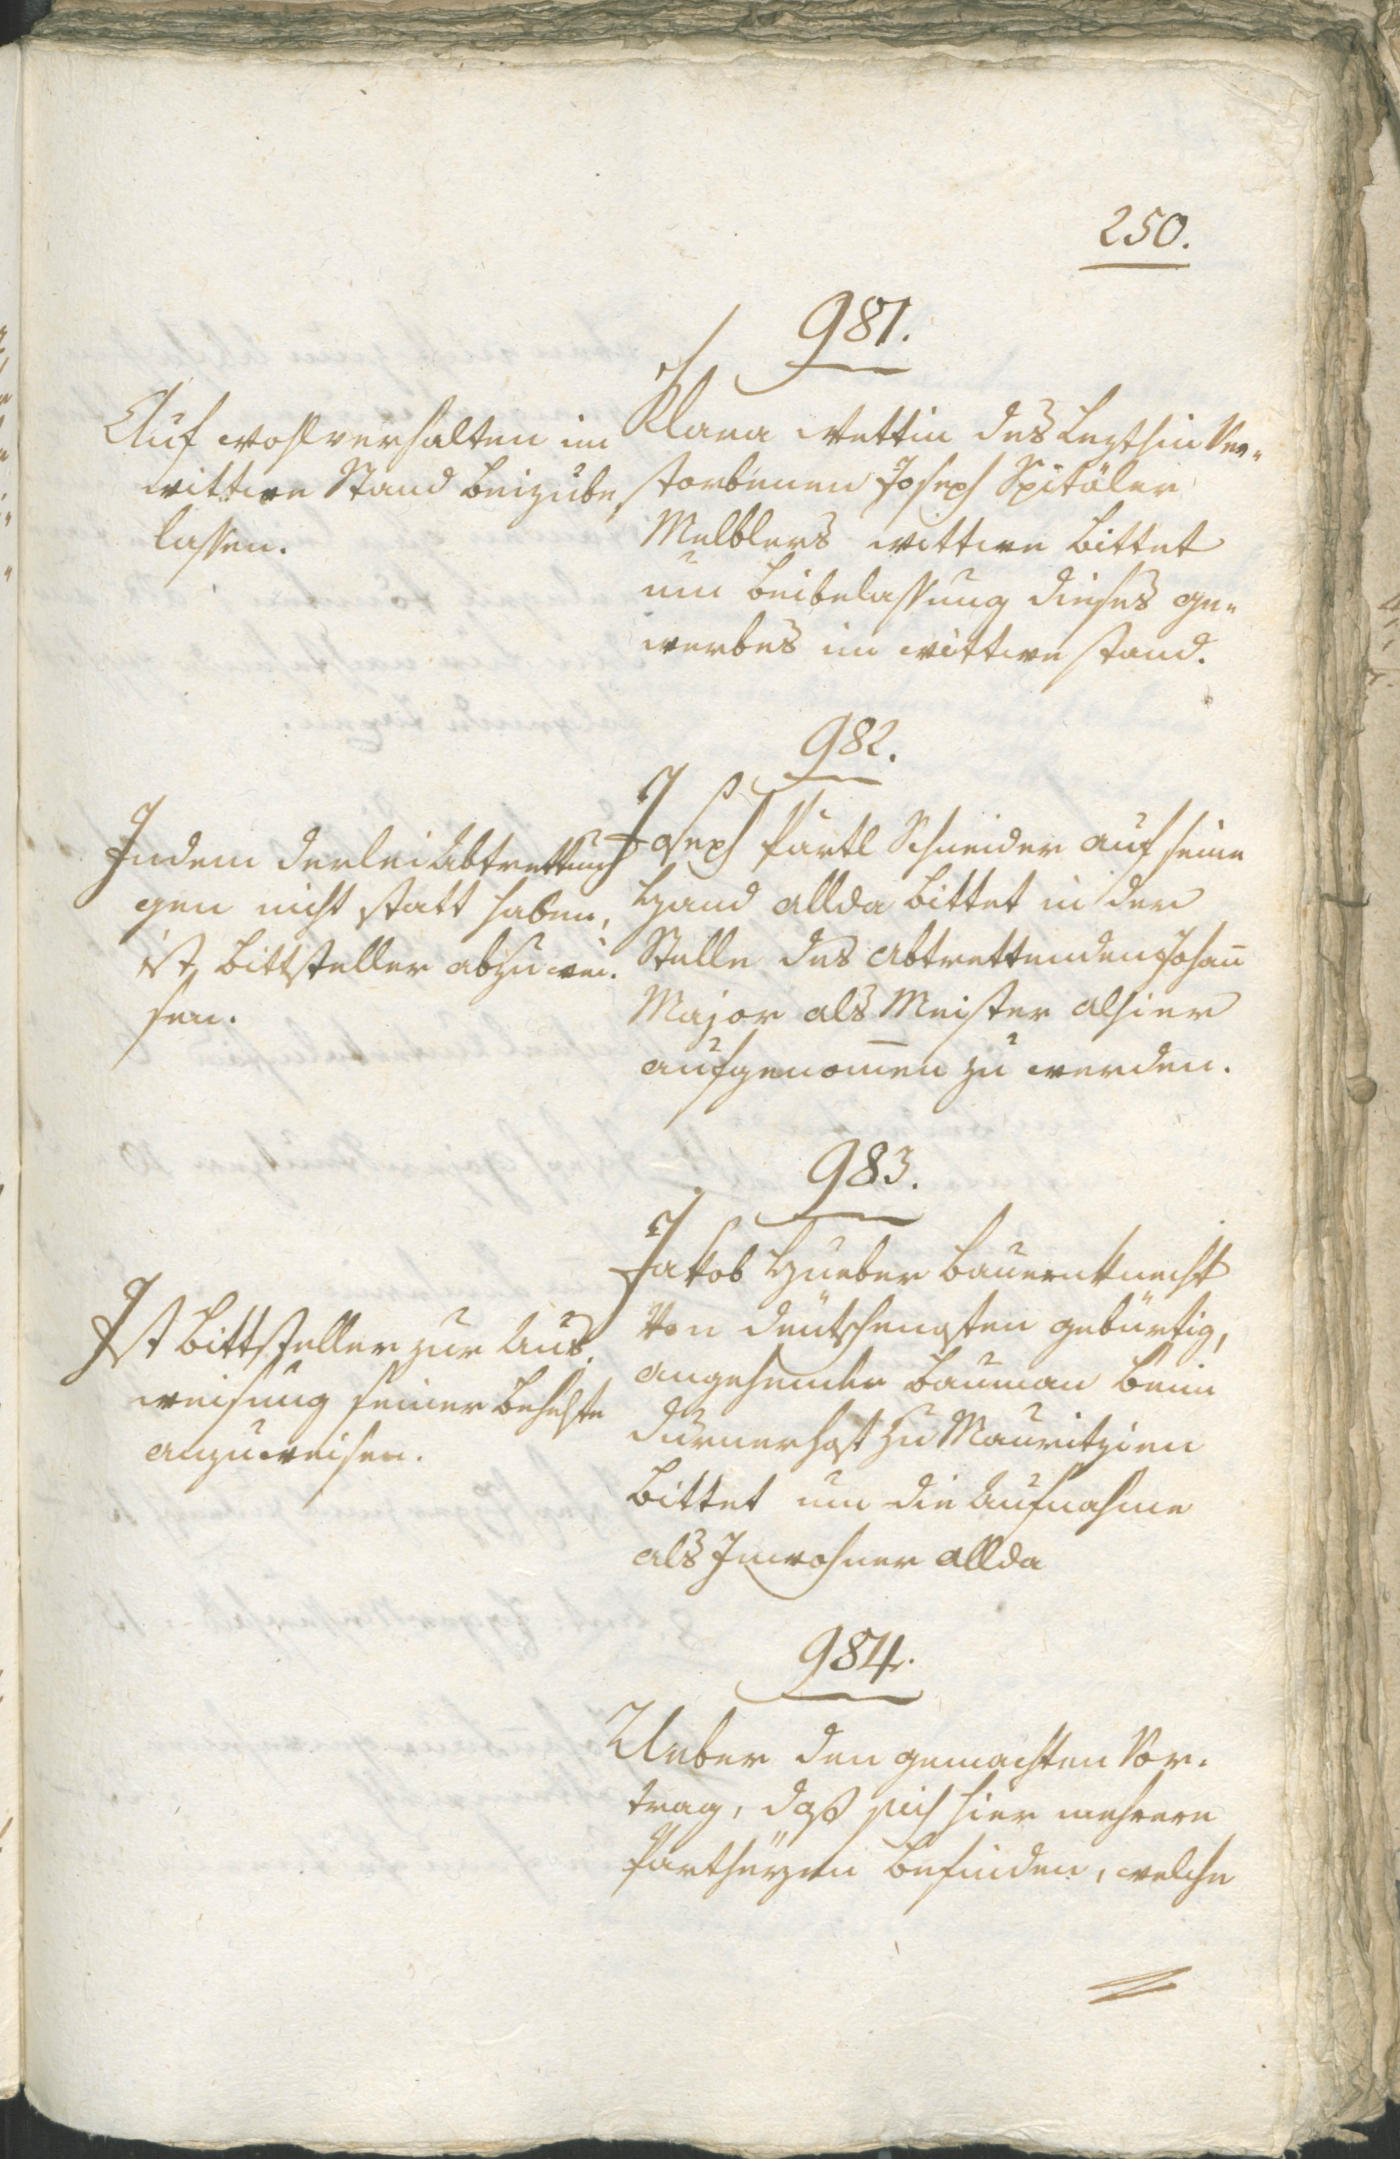 250.
981.
Klara Wettin des Lezthin Ver-
storbenen Joseph Spitäler
Melblers wittwe bittet
um beibelassung dieses ge-
werbes im wittwe stand.
Auf wohlverhalten im
wittwe Stand beizube-
lassen.
982.
Joseph Pärtl Schneider auf seine
Hand allda bittet in der
Stelle des abtrettenden Johann
Major als Meister alhier
aufgenomen zu werden.
Indem derlei Abtrettun-
gen nicht statt haben,
ist Bittsteller abzuwei-
sen.
983.
Jakob Hueber Bauernknecht
Von deutschenofen gebürtig,
angehender Bauman beim
Turnerhof zu Mauritzien
bittet um die Aufnahme
als Inwohner allda
Ist Bittsteller zur Aus-
weisung seiner Behelfe
anzuweisen.
984.
Ueber den gemachten Vor-
trag, daß sich hier mehrere
Partheyen befinden, welche